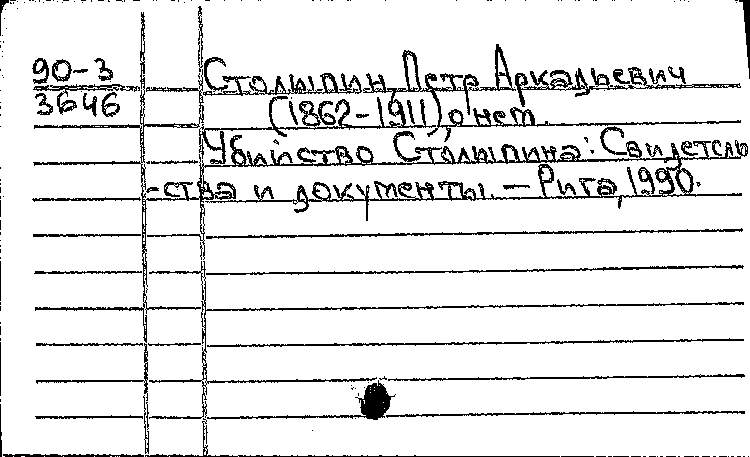 90-3 Столыпин, Петр Аркадьевич
3646 (1862-1911) о нем.
Убийство Столыпина: Свидетель
-ства и документы. - Рига, 1990.